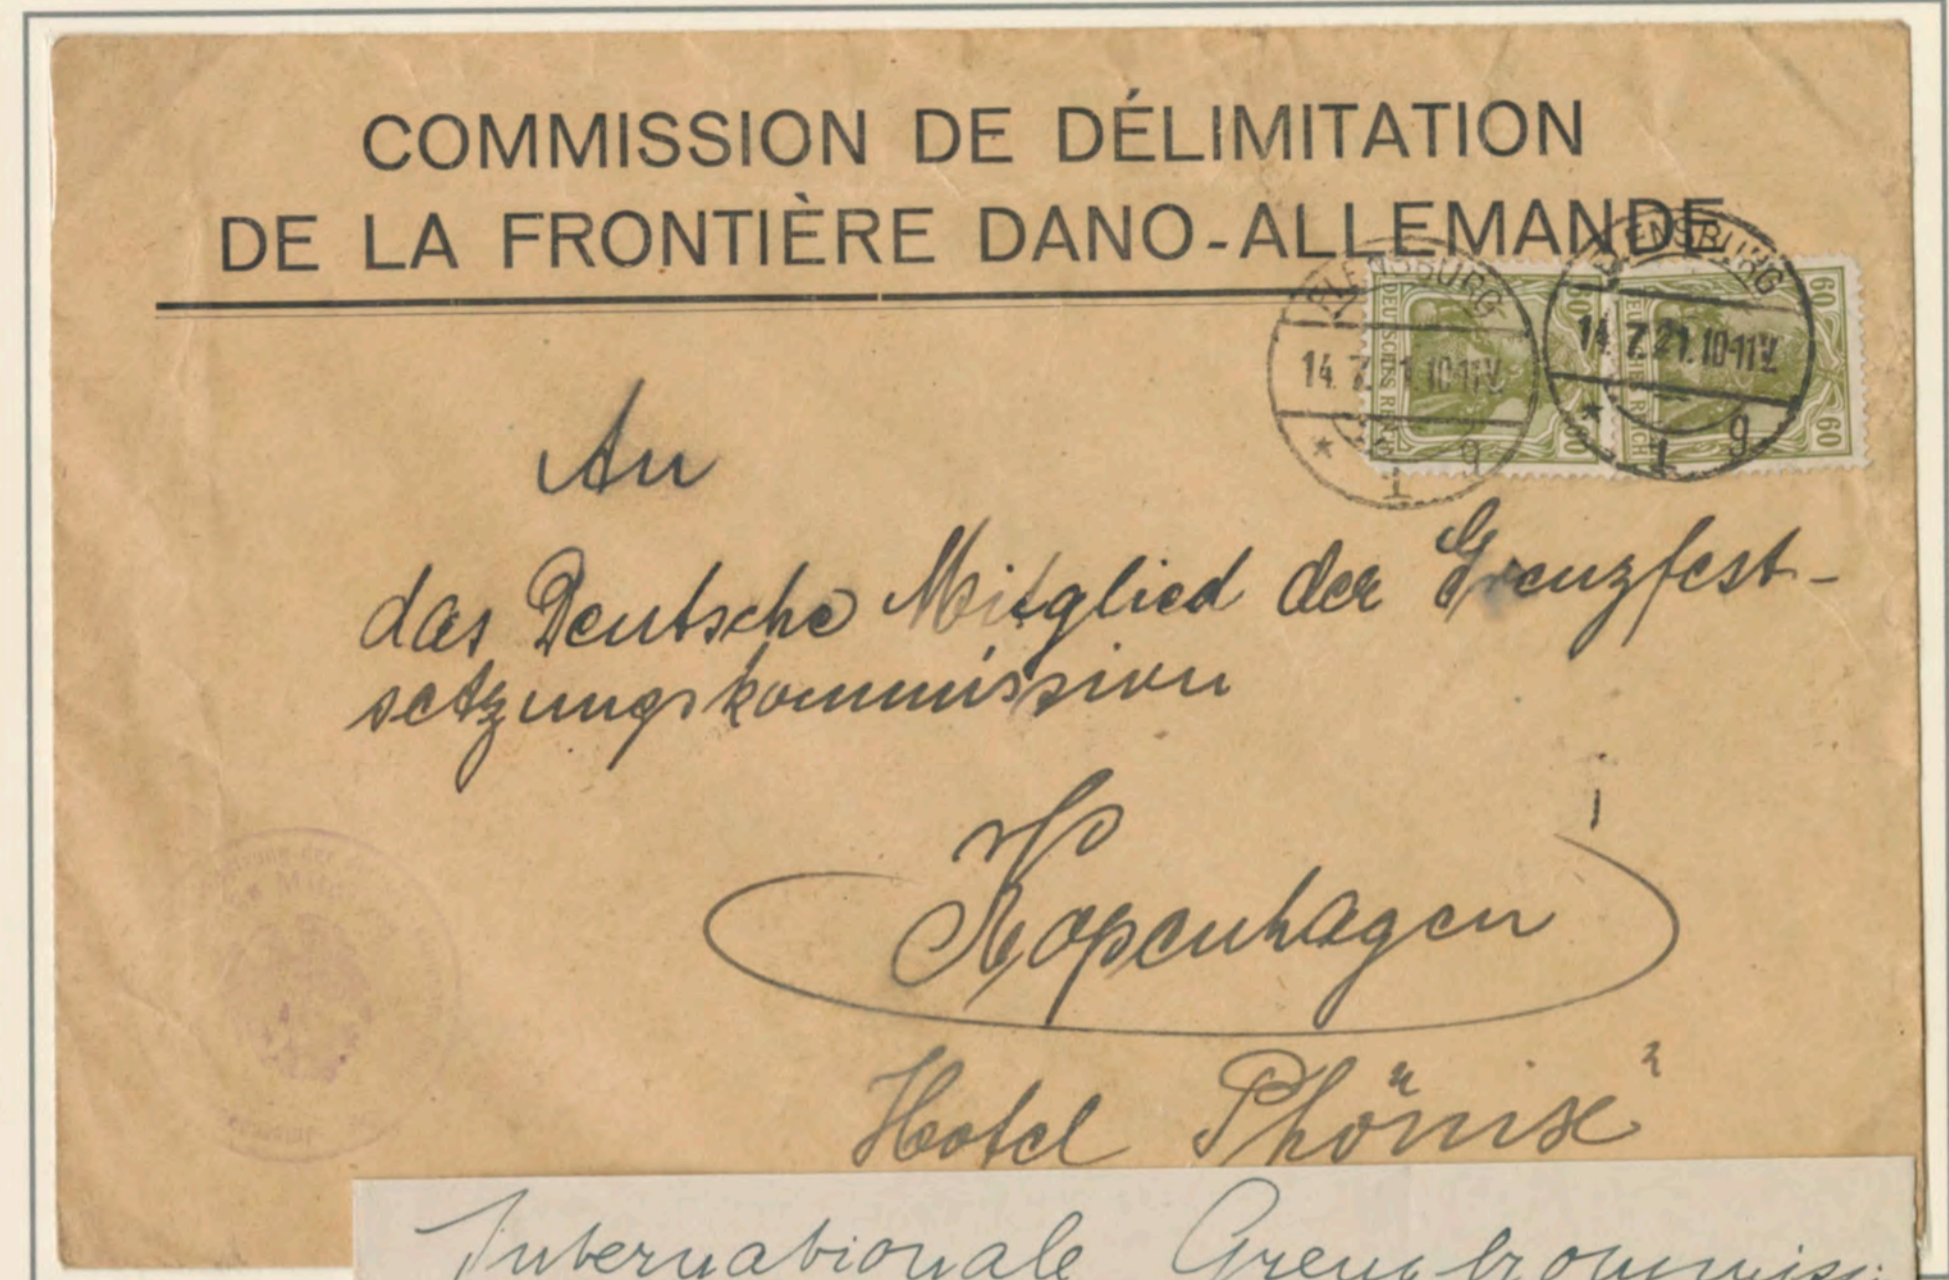 COMMISSION DE DÉLIMITATION
DE LA FRONTIÈRE DANO-ALLEMANDE
FLENSBURG
14.7.21.10-11V.
* 1 g
FLENSBURG
14.7.21.10-11V.
* 1 g
DEUTSCHES REICH
60
DEUTSCHES REICH
60
60
An
das Deutsche Mitglied der Grenzfest-
setzungskommission
Kopenhagen
Hotel "Phönix"
Internationale